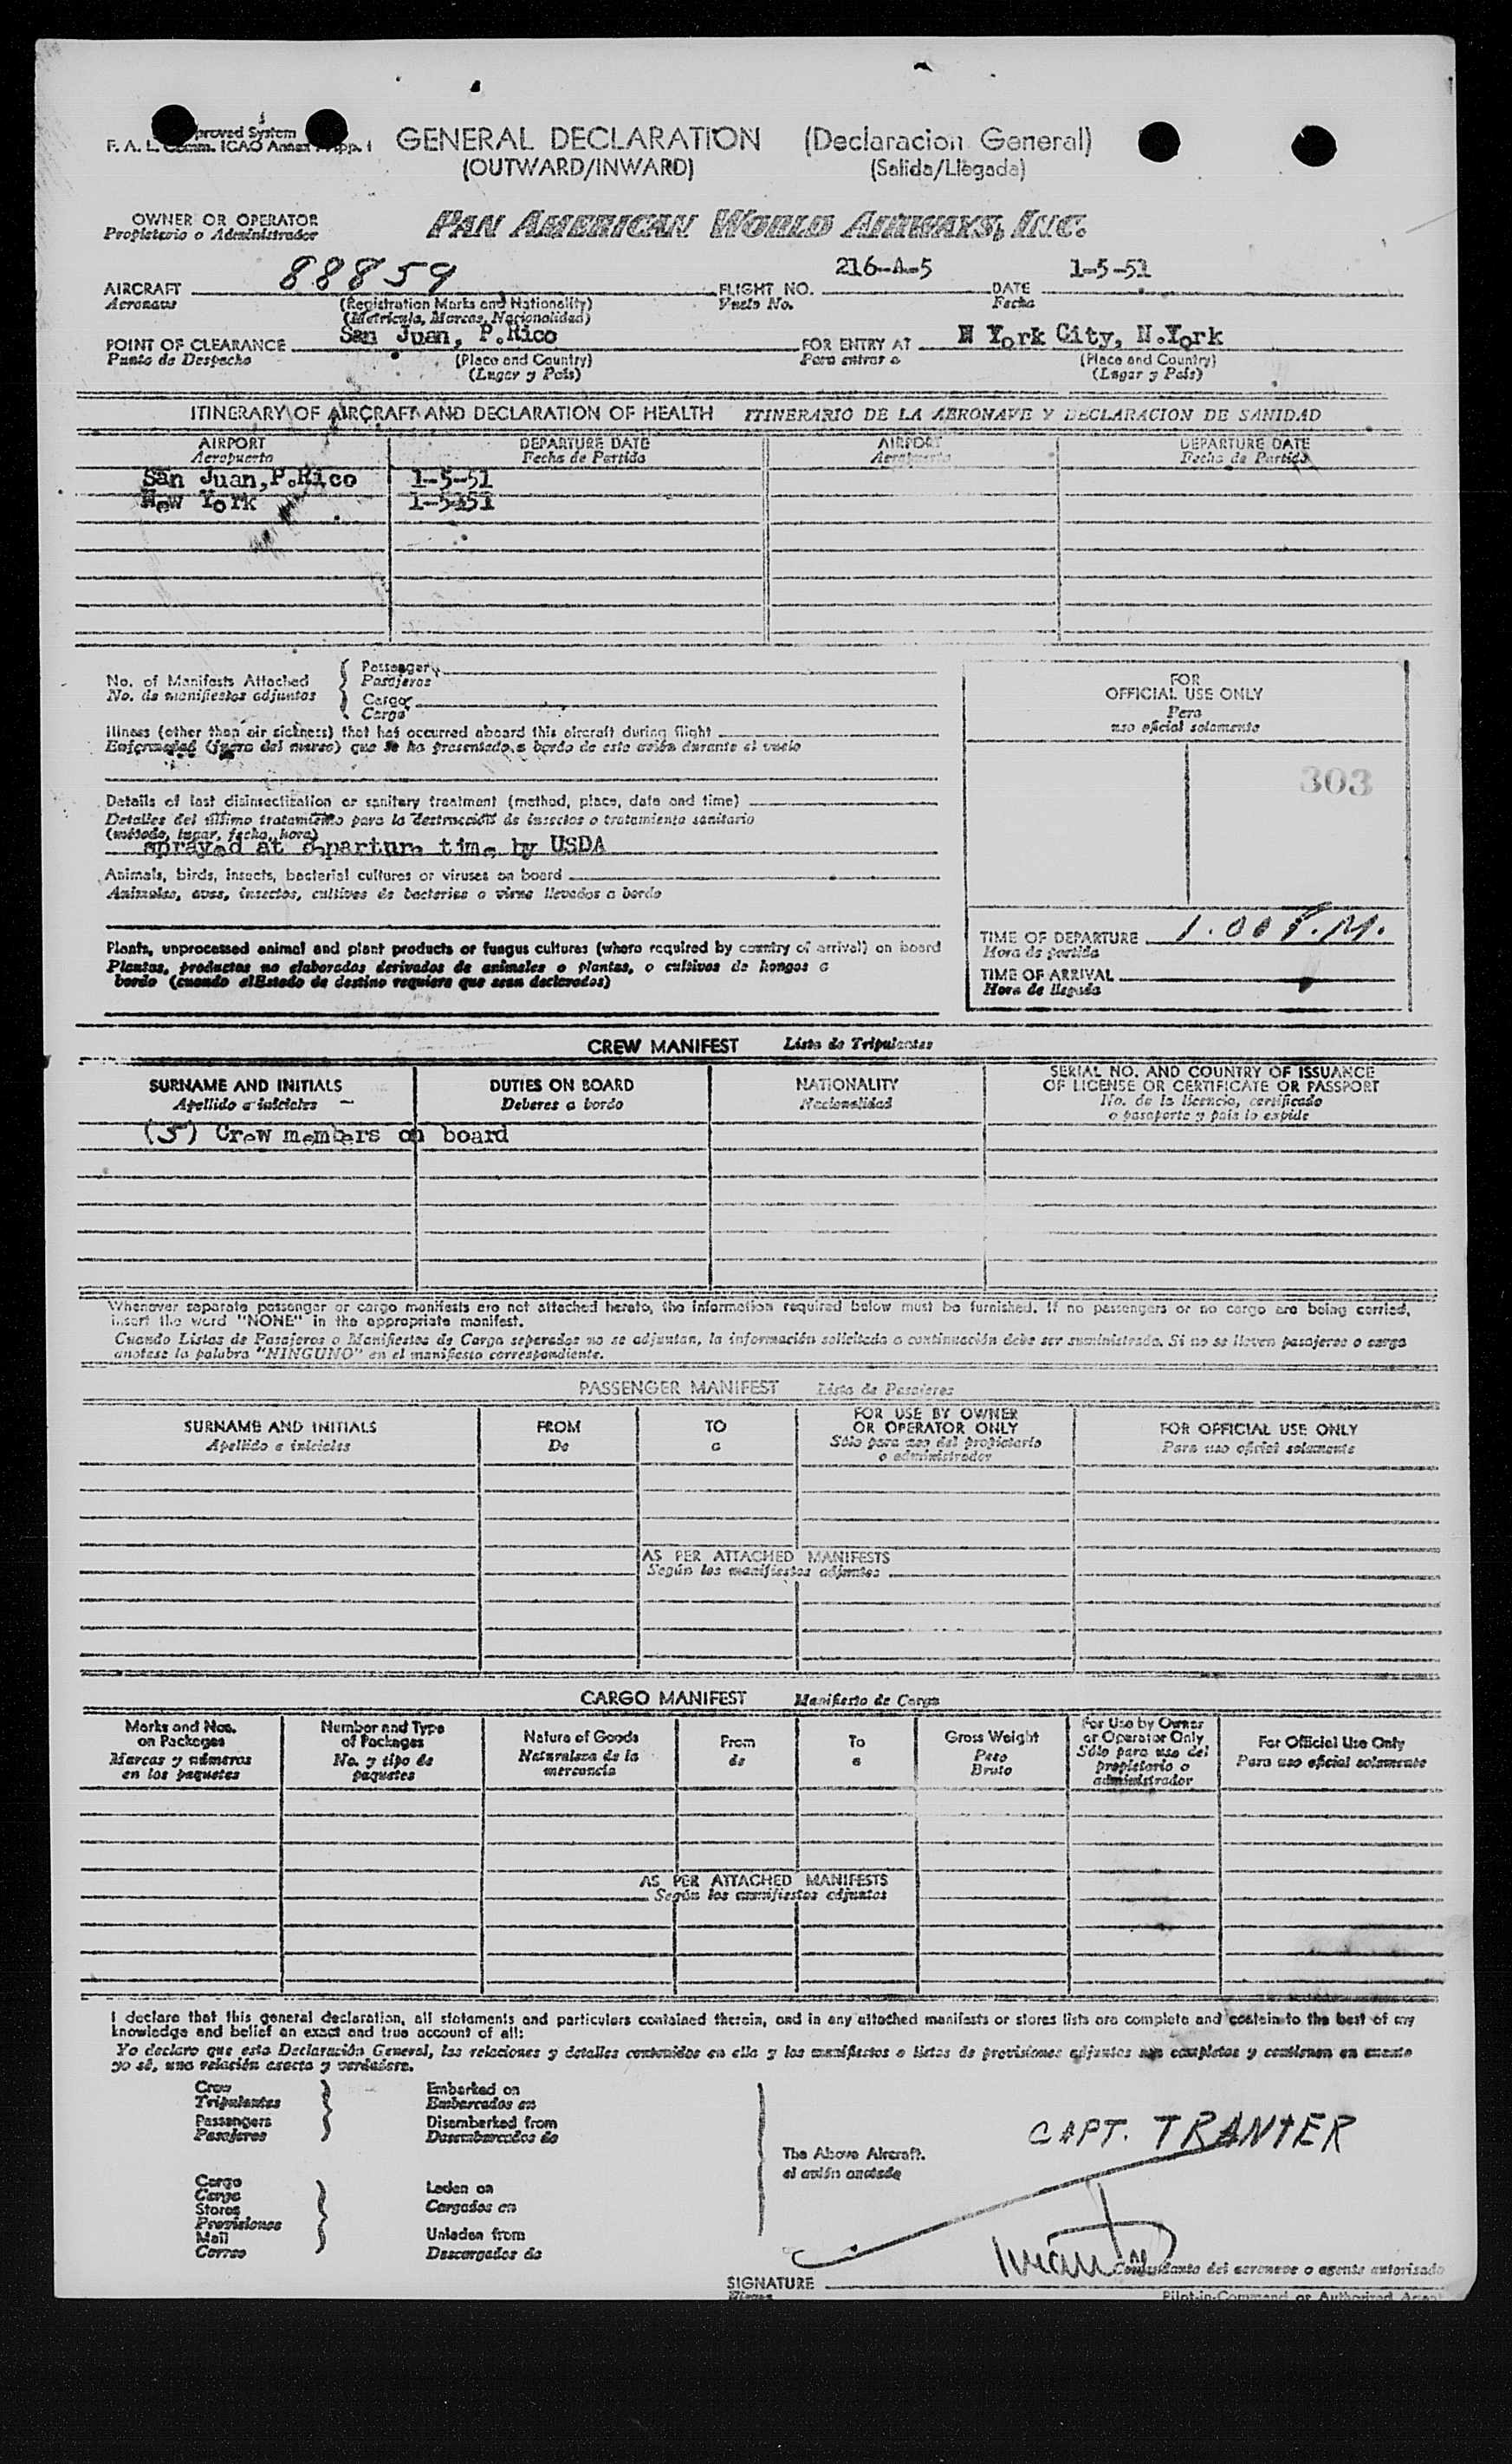 Approved System
F. A. L. Comm. ICAO Annex
GENERAL DECLARATION (Declaracion General)
(OUTWARD/INWARD) (Salida/Llegada)
OWNER OR OPERATOR
Propietario o Administrador
PAN AMERICAN WORLD AIRWAYS, INC.
AIRCRAFT 88859 FLIGHT NO. 216-A-5 DATE 1-5-51
Aeronave (Registration Marks and Nationality) Vuelo No. Fecha
(Matricula, Marcas, Nacionalidad)
POINT OF CLEARANCE San Juan, P.Rico FOR ENTRY AT N York City, N.York
Punto de Despacho (Place and Country) Para entrar a (Place and Country)
(Lugar y País) (Lugar y País)
ITINERARY OF AIRCRAFT AND DECLARATION OF HEALTH ITINERARIO DE LA AERONAVE Y DECLARACION DE SANIDAD
AIRPORT DEPARTURE DATE AIRPORT DEPARTURE DATE
Aeropuerto Fecha de Partida Aeropuerto Fecha de Partida
San Juan,P.Rico 1-5-51
New York 1-5-51
No. of Manifests Attached
No. de manifiestos adjuntos
Passenger
Pasajeros
Cargo
Carga
FOR
OFFICIAL USE ONLY
Para
uso oficial solamente
303
Illness (other than air sickness) that has occurred aboard this aircraft during flight
Enfermedad (fuera del mareo) que se ha presentado a bordo de este avión durante el vuelo
Details of last disinsectization or sanitary treatment (method, place, date and time)
Detalles del último tratamiento para la destrucción de insectos o tratamiento sanitario
(método, lugar, fecha, hora)
sprayed at departure time by USDA
Animals, birds, insects, bacterial cultures or viruses on board
Animales, aves, insectos, cultivos de bacterias o virus llevados a bordo
Plants, unprocessed animal and plant products or fungus cultures (where required by country of arrival) on board
Plantas, productos no elaborados derivados de animales o plantas, o cultivos de hongos a
bordo (cuando el Estado de destino requiera que sean declarados)
TIME OF DEPARTURE 1.00 P.M.
Hora de partida
TIME OF ARRIVAL
Hora de llegada
CREW MANIFEST Lista de Tripulantes
SURNAME AND INITIALS DUTIES ON BOARD NATIONALITY SERIAL NO. AND COUNTRY OF ISSUANCE
OF LICENSE OR CERTIFICATE OR PASSPORT
Apellido e iniciales Deberes a bordo Nacionalidad No. de la licencia, certificado
o pasaporte y pais lo expide
(5) Crew members on board
Whenever separate passenger or cargo manifests are not attached hereto, the information required below must be furnished. If no passengers or no cargo are being carried,
insert the word "NONE" in the appropriate manifest.
Cuando Listas de Pasajeros o Manifiestos de Carga separados no se adjuntan, la información solicitada a continuación debe ser suministrada. Si no se llevan pasajeros o carga
anotese la palabra "NINGUNO" en el manifiesto correspondiente.
PASSENGER MANIFEST Lista de Pasajeros
SURNAME AND INITIALS FROM TO FOR USE BY OWNER
OR OPERATOR ONLY FOR OFFICIAL USE ONLY
Apellido e iniciales De a Sólo para uso del propietario
o administrador Para uso oficial solamente
AS PER ATTACHED MANIFESTS
Según los manifiestos adjuntos
CARGO MANIFEST Manifiesto de Carga
Marks and Nos.
on Packages
Marcas y números
en los paquetes
Number and Type
of Packages
No. y tipo de
paquetes
Nature of Goods
Naturaleza de la
mercancía
From
de
To
a
Gross Weight
Peso
Bruto
For Use by Owner
or Operator Only
Sólo para uso del
propietario o
administrador
For Official Use Only
Para uso oficial solamente
AS PER ATTACHED MANIFESTS
Según los manifiestos adjuntos
I declare that this general declaration, all statements and particulars contained therein, and in any attached manifests or stores lists are complete and contain to the best of my
knowledge and belief an exact and true account of all:
Yo declaro que esta Declaración General, las relaciones y detalles contenidos en ella y los manifiestos o listas de provisiones adjuntos son completos y contienen en cuanto
yo sé, una relación exacta y verdadera.
Crew
Tripulantes
Passengers
Pasajeros
Embarked on
Embarcados en
Disembarked from
Desembarcados de
Cargo
Carga
Stores
Provisiones
Mail
Correo
Laden on
Cargados en
Unladen from
Descargados de
The Above Aircraft.
el avión
CAPT. TRANTER
Comandante del aeronave o agente autorizado
SIGNATURE
Firma Pilot-in-Command or Authorized Agent